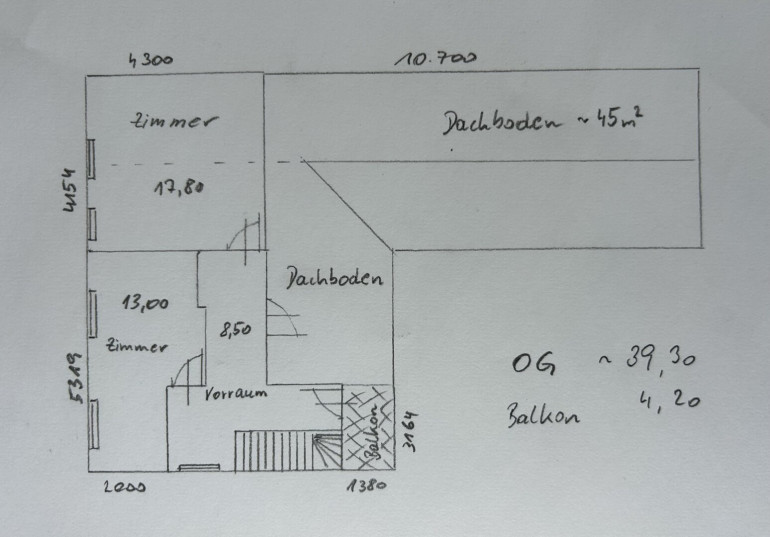 4300
10.700
Zimmer
Dachboden ~ 45m²
4154
17,80
Dachboden
13,00
8,50
Zimmer
OG ~ 39,30
5319
Vorraum
Balkon 4,20
Balkon
3164
2000
1380